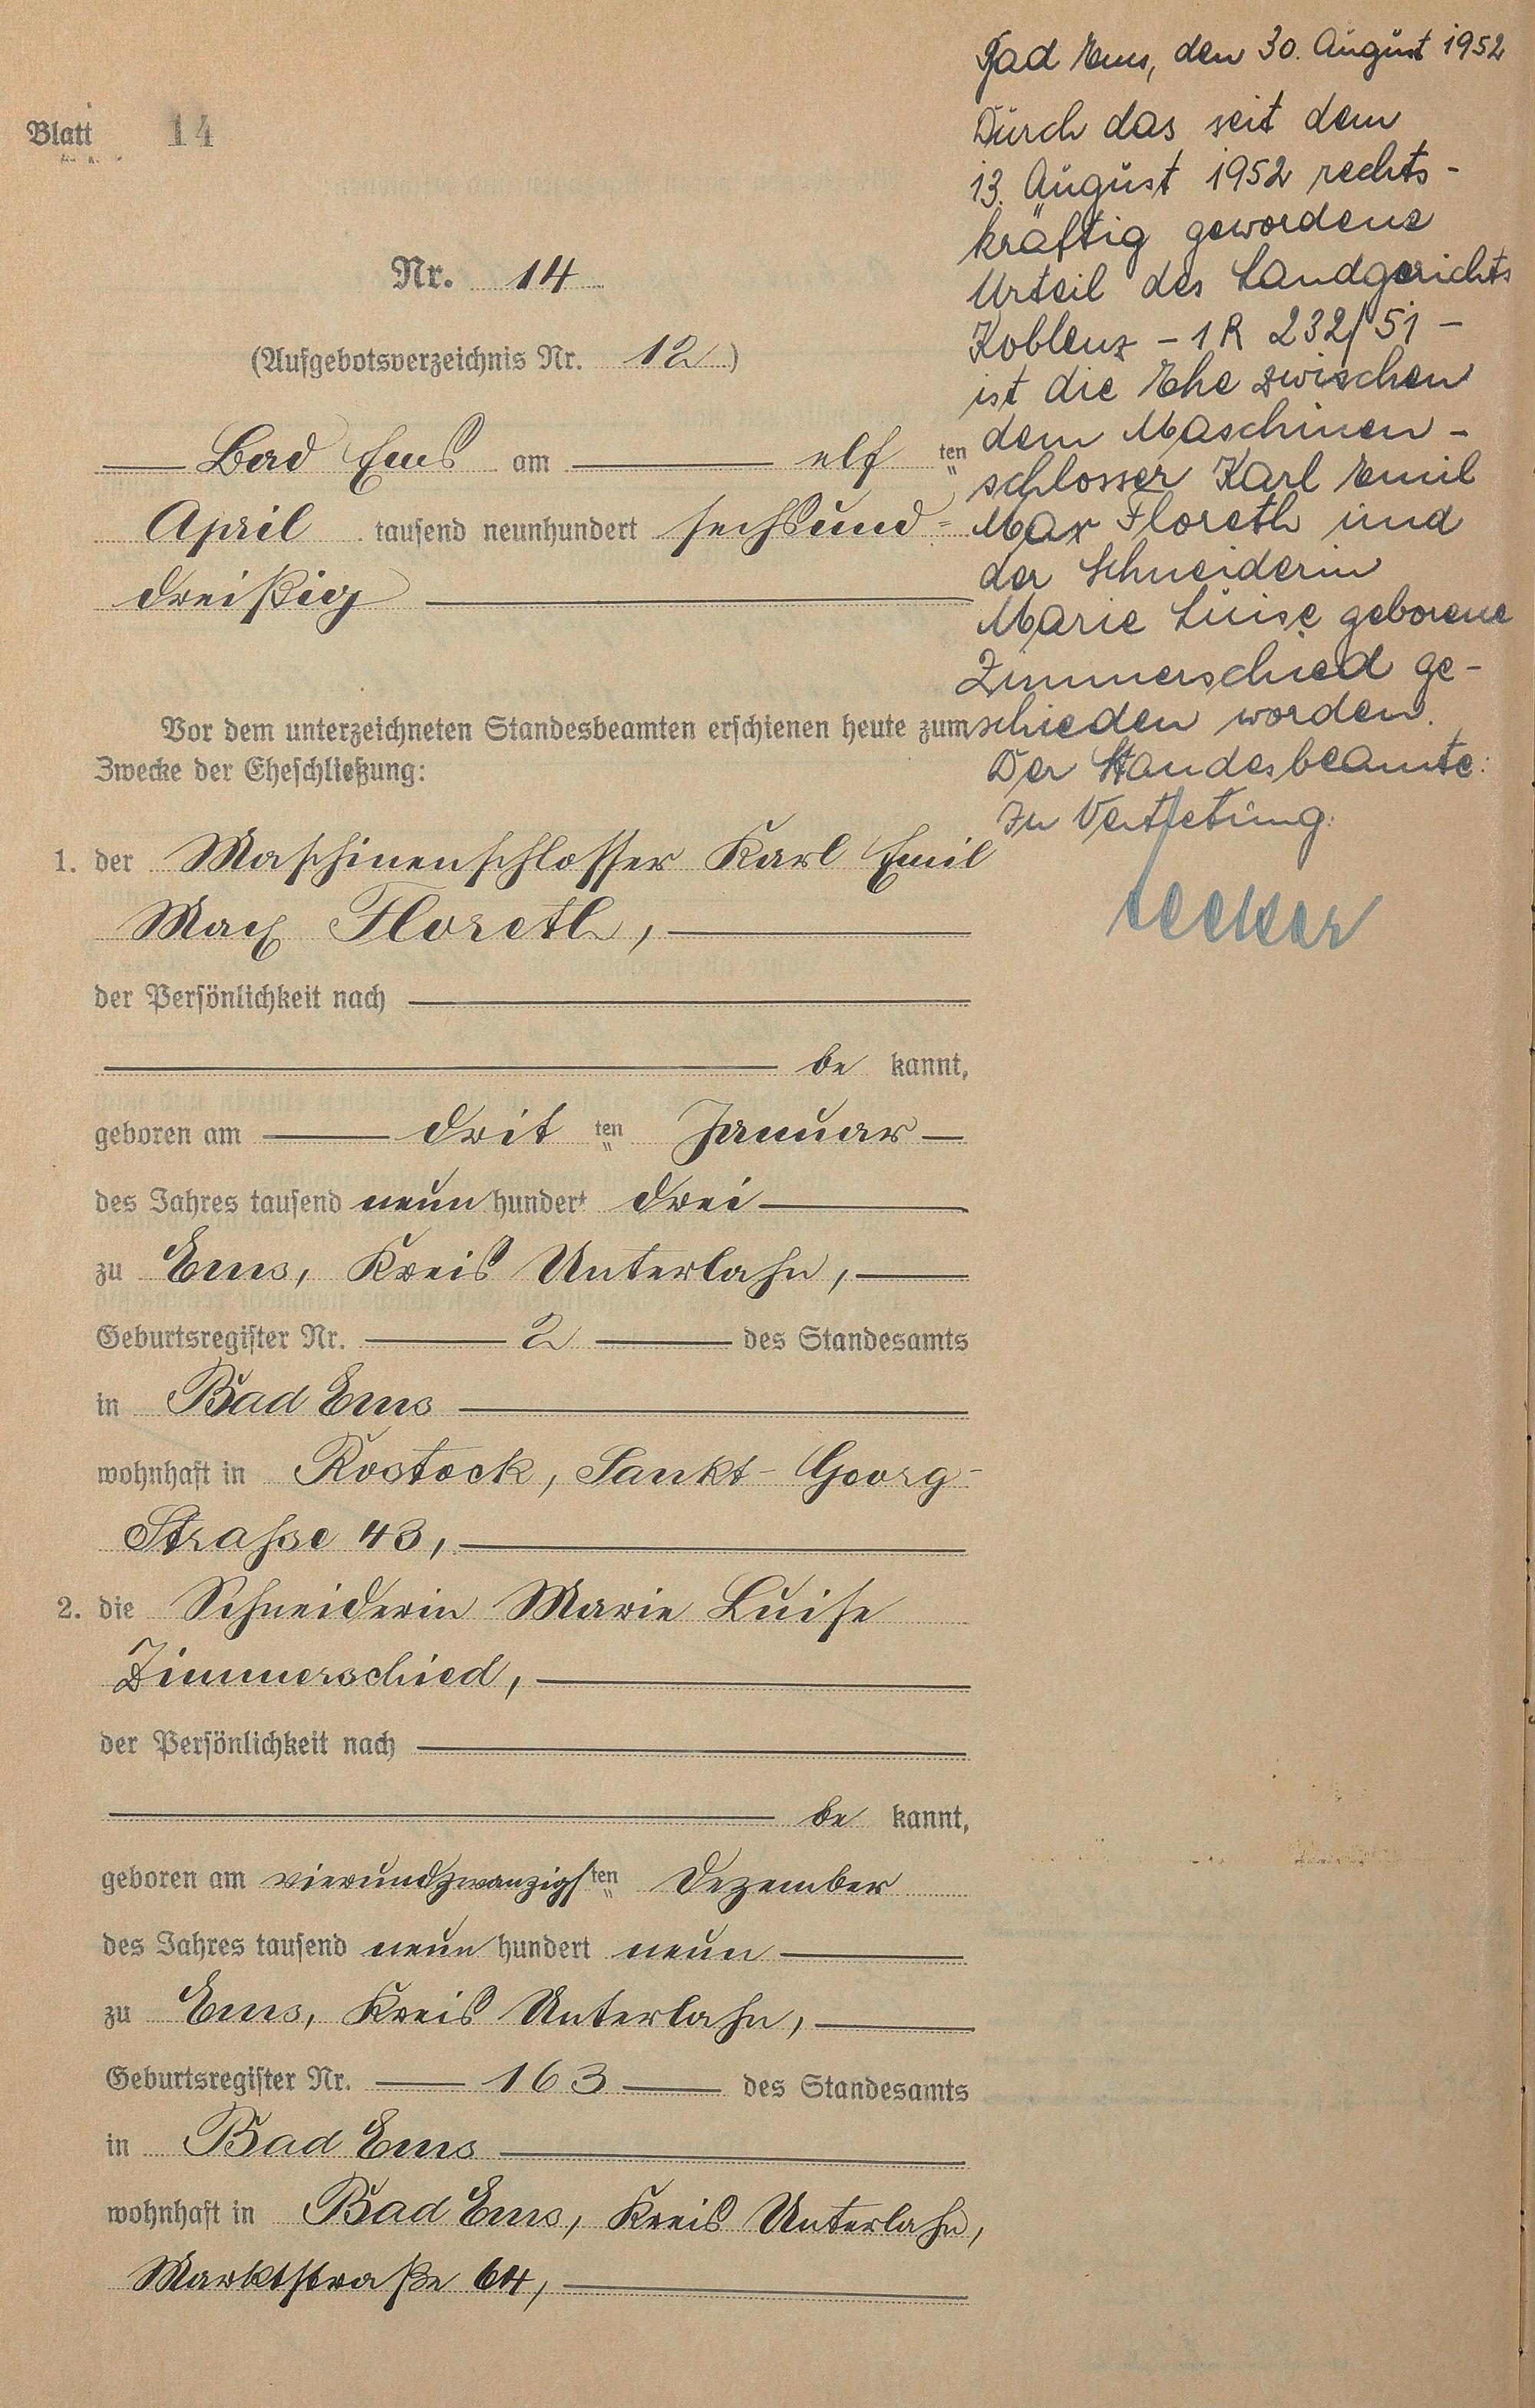 Blatt 14
Nr. 14
(Aufgebotsverzeichnis Nr. 12)
Bad Ems am elf ten
April tausend neunhundert sechsund=
dreißig
Vor dem unterzeichneten Standesbeamten erschienen heute zum
Zwecke der Eheschließung:
1. der Maschinenschlosser Karl Emil
Max Floreth,
der Persönlichkeit nach
be kannt,
geboren am drit ten Januar
des Jahres tausend neun hundert drei
zu Ems, Kreis Unterlahn,
Geburtsregister Nr. 2 des Standesamts
in Bad Ems
wohnhaft in Rostock, Sankt-Georg-
Strasse 43,
2. die Schneiderin Marie Luise
Zimmerschied,
der Persönlichkeit nach
be kannt,
geboren am vierundzwanzigs ten Dezember
des Jahres tausend neun hundert neun
zu Ems, Kreis Unterlahn,
Geburtsregister Nr. 163 des Standesamts
in Bad Ems
wohnhaft in Bad Ems, Kreis Unterlahn,
Marktstraße 64,
Bad Ems, den 30. August 1952
Durch das seit dem
13. August 1952 rechts-
kräftig gewordene
Urteil des Landgerichts
Koblenz - 1 R 232/51 -
ist die Ehe zwischen
dem Maschinen-
schlosser Karl Emil
Max Floreth und
der Schneiderin
Marie Luise geborene
Zimmerschied ge-
schieden worden.
Der Standesbeamte:
In Vertretung: